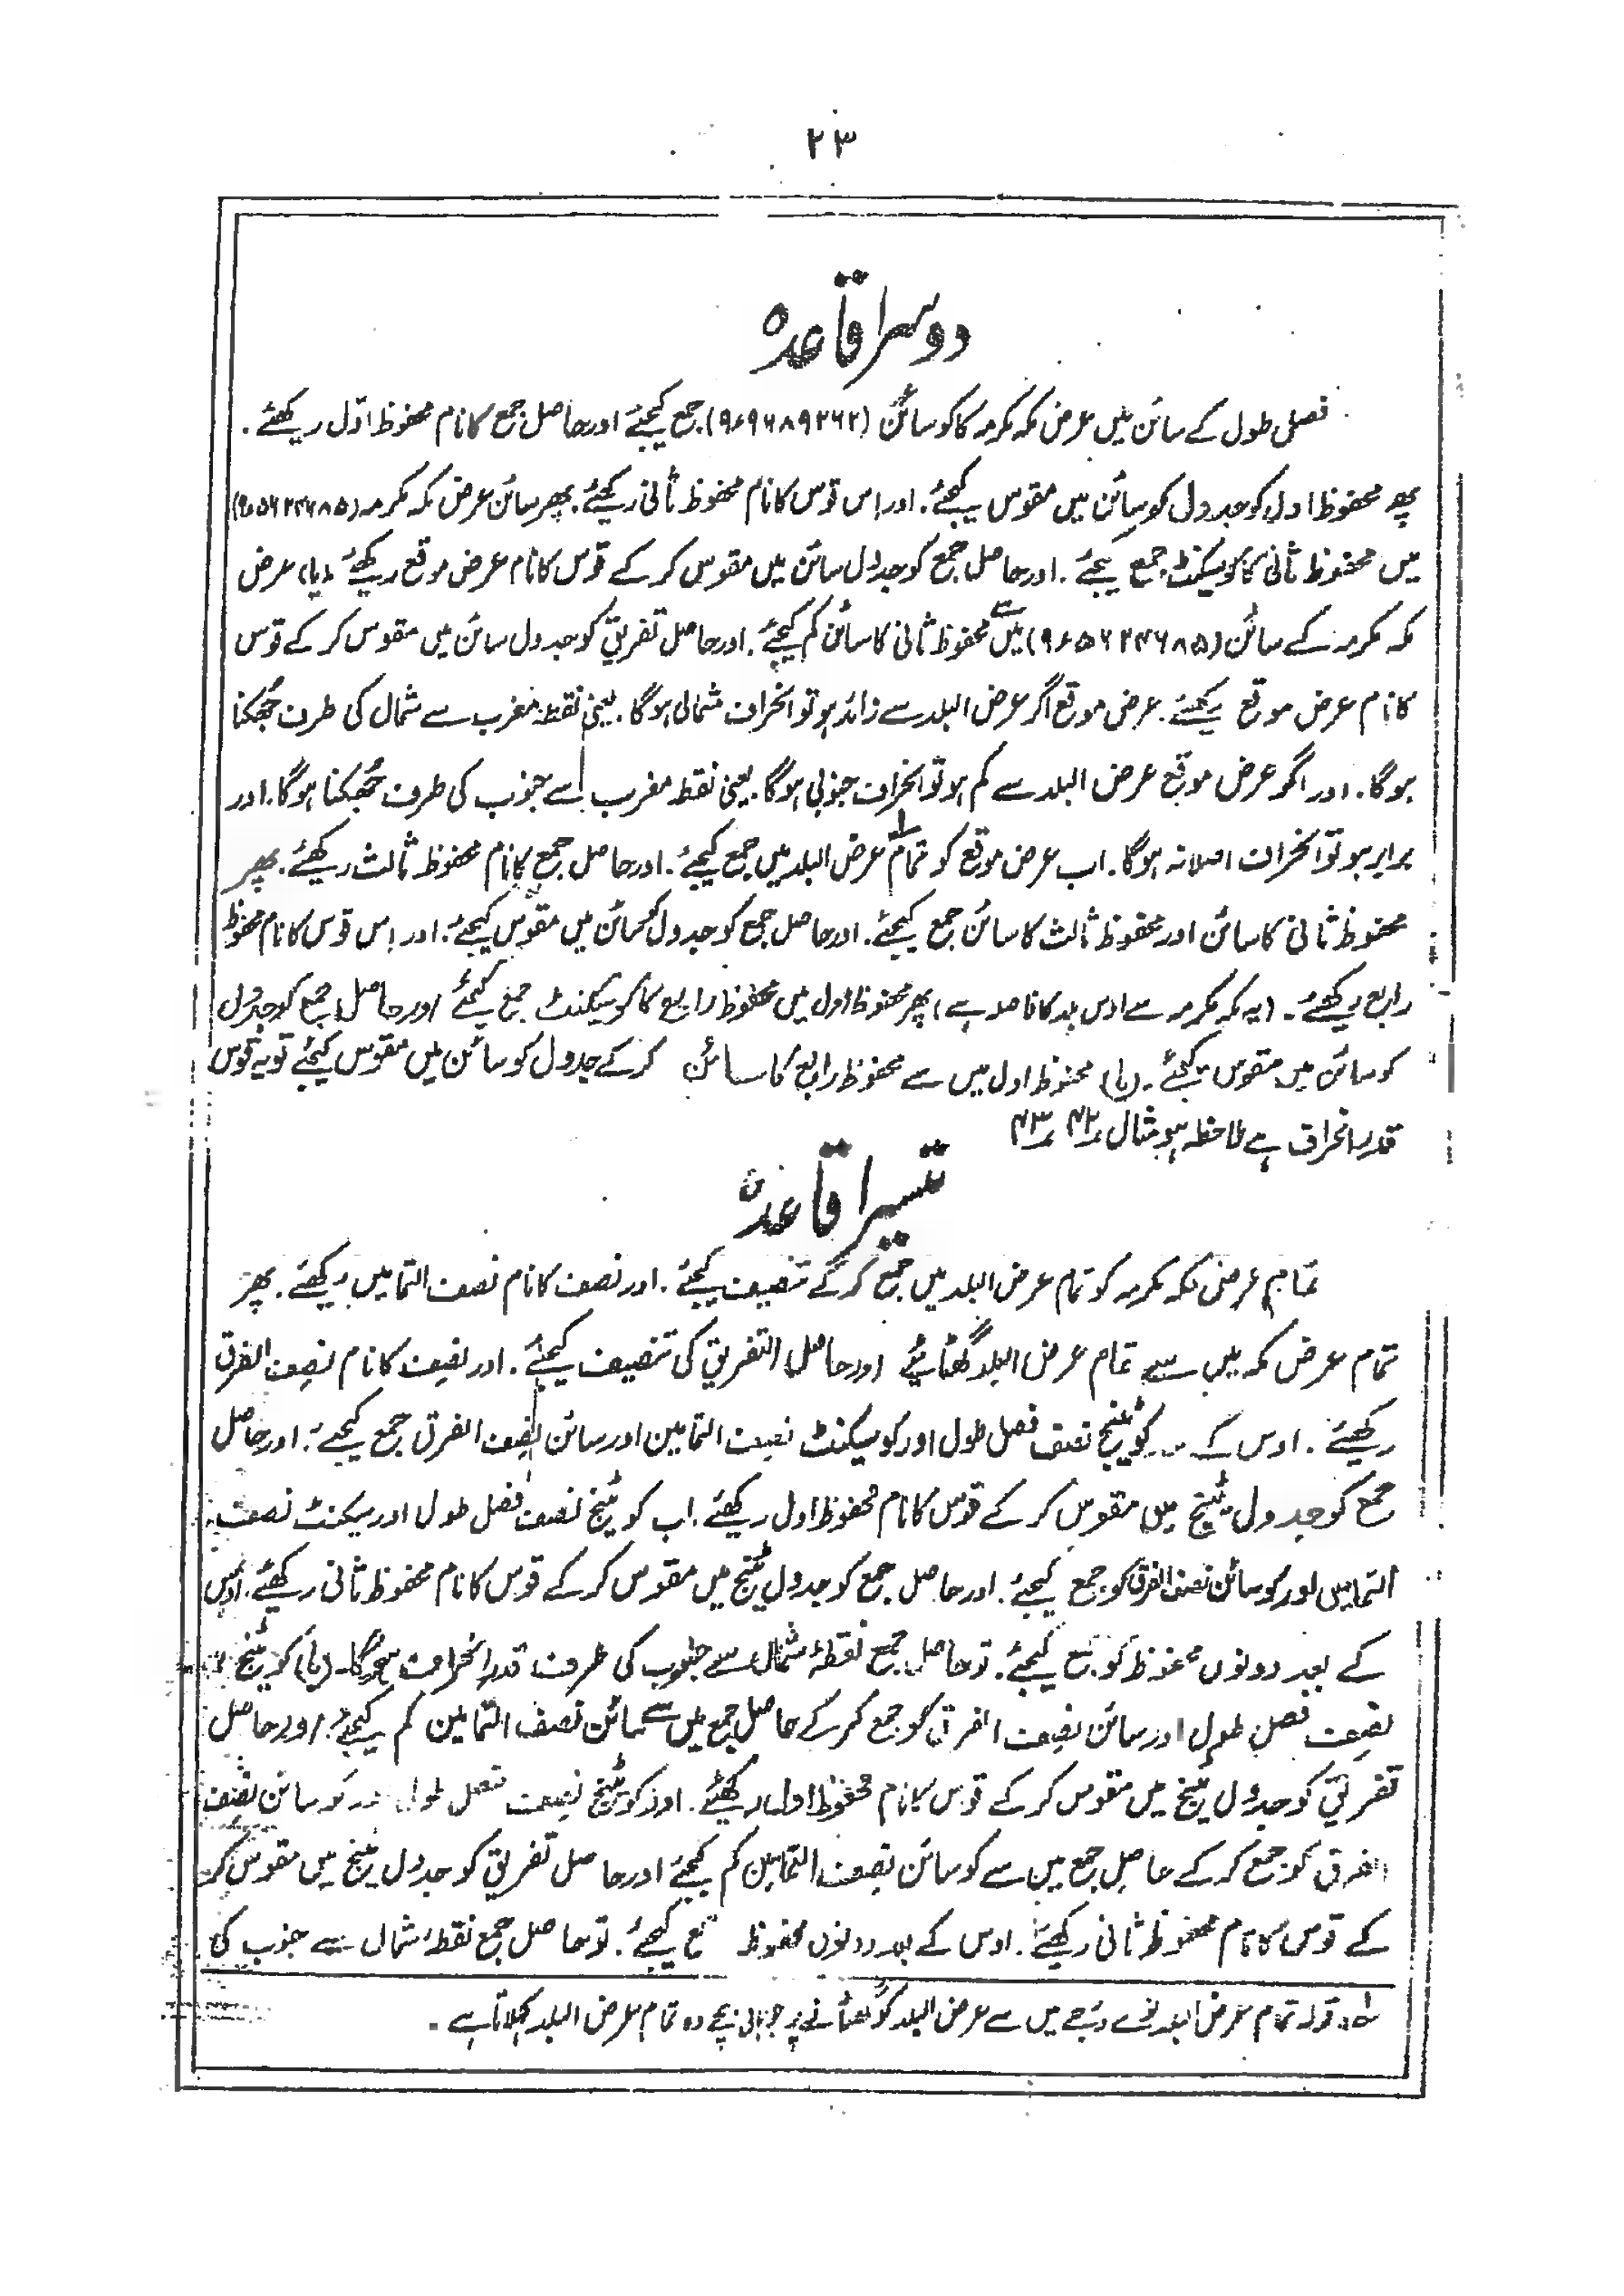 ۲۳
دوسرا قاعدہ
فصل طول کے سائن میں عرض مکہ مکرمہ کا کوسائن (۹ء۹۶۸۹۲۶۲) جمع کیجئے اور حاصل جمع کا نام محفوظ اوّل رکھئے.
پھر محفوظ اول کو جدول کوسائن میں مقوس کیجئے. اور اس قوس کا نام محفوظ ثانی رکھئے. پھر سائن عرض مکہ مکرمہ (۹ء۵۶۲۴۶۸۵)
میں محفوظ ثانی کا کوسیکنٹ جمع کیجئے. اور حاصل جمع کو جدول سائن میں مقوس کر کے قوس کا نام عرض موقع رکھئے (یا) عرض
مکہ مکرمہ کے سائن (۹ء۵۶۲۴۶۸۵) میں سے محفوظ ثانی کا سائن کم کیجئے. اور حاصل تفریق کو جدول سائن میں مقوس کر کے قوس
کا نام عرض موقع رکھئے. عرض موقع اگر عرض البلد سے زائد ہو تو انحراف شمالی ہوگا. یعنی نقطہ مغرب سے شمال کی طرف جھکنا
ہوگا. اور اگر عرض موقع عرض البلد سے کم ہو تو انحراف جنوبی ہوگا. یعنی نقطہ مغرب سے جنوب کی طرف جُھکنا ہوگا. اور
برابر ہو تو انحراف اصلا نہ ہوگا. اب عرض موقع کو تمام؂۱ عرض البلد میں جمع کیجئے. اور حاصل جمع کا نام محفوظ ثالث رکھئے. پھر
محفوظ ثانی کا سائن اور محفوظ ثالث کا سائن جمع کیجئے. اور حاصل جمع کو جدول کوسائن میں مقوس کیجئے. اور اس قوس کا نام محفوظ
رابع رکھئے۔ (یہ مکہ مکرمہ سے اوس بلد کا فاصلہ ہے) پھر محفوظ اول میں محفوظ رابع کا کوسیکنٹ جمع کیجئے اور حاصل جمع کو جدول
کوسائن میں مقوس کیجئے۔ (یا) محفوظ اول میں سے محفوظ رابع کا سائن کر کے جدول کوسائن میں مقوس کیجئے تو یہ قوس
قدر انحراف ہے ملاحظہ ہو مثال ۴۲، ۴۳
تیسرا قاعدہ
تمام عرض مکہ مکرمہ کو تمام عرض البلد میں جمع کر کے تنصیف کیجئے. اور نصف کا نام نصف التمامین رکھئے. پھر
تمام عرض مکہ میں سے تمام عرض البلد گھٹائیے اور حاصل التفریق کی تنصیف کیجئے. اور نصف کا نام نصف الفرق
رکھئے. اوس کے کوٹینج نصف فصل طول اور کوسیکنٹ نصف التمامین اور سائن نصف الفرق جمع کیجئے. اور حاصل
جمع کو جدول ٹینج میں مقوس کر کے قوس کا نام محفوظ اول رکھئے. اب کوٹینج نصف فصل طول اور سیکنٹ نصف
التمامین اور کوسائن نصف الفرق کو جمع کیجئے. اور حاصل جمع کو جدول ٹینج میں مقوس کر کے قوس کا نام محفوظ ثانی رکھئے. اوس
کے بعد دونوں محفوظ کو جمع کیجئے. تو حاصل جمع نقطۂ شمال سے جنوب کی طرف قدر انحراف ہوگا۔ (یا) کوٹینج
نصف فصل طول اور سائن نصف الفرق کو جمع کر کے حاصل جمع میں سے سائن نصف التمامین کم کیجئے. اور حاصل
تفریق کو جدول ٹینج میں مقوس کر کے قوس کا نام محفوظ اول رکھئے. اور کوٹینج نصف فصل طول اور کوسائن نصف
الفرق کو جمع کر کے حاصل جمع میں سے کوسائن نصف التمامین کم کیجئے اور حاصل تفریق کو جدول ٹینج میں مقوس کر
کے قوس کا نام محفوظ ثانی رکھئے. اوس کے بعد دونوں محفوظ جمع کیجئے. تو حاصل جمع نقطۂ شمال سے جنوب کی
؂۱ قولہ تمام عرض البلد نوے درجے میں سے عرض البلد کو گھٹانے پر جو باقی بچے وہ تمام عرض البلد کہلاتا ہے۔